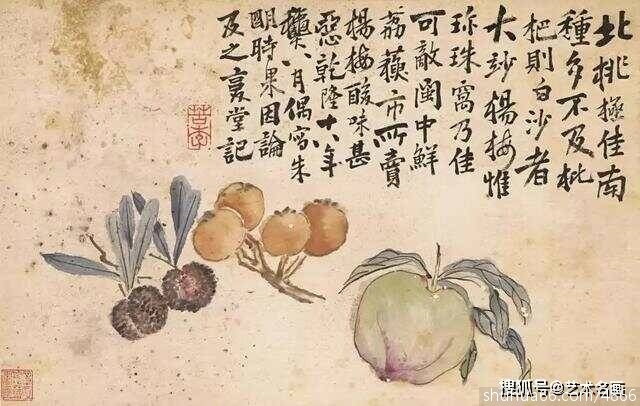 北桃極佳南
種多不及枇
杷則白沙者
大妙楊梅惟
珎珠窩乃佳
可敵閩中鮮
荔市所賣
楊梅酸味甚
惡乾隆十八年
八月偶寫朱
明時果因論
及之复堂記
苦李
搜狐号@艺术名画
shuhua66.com/4666